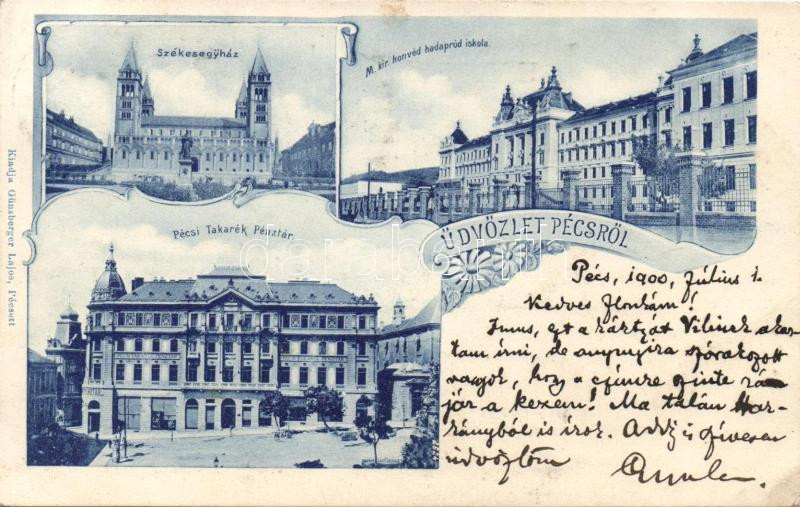 Székesegyház
M. kir. honvéd hadapród iskola.
Pécsi Takarék Pénztár.
ÜDVÖZLET PÉCSRŐL
Kiadja Günsberger Lajos, Pécsett
Pécs, 1900, július 1.
Kedves Ilonkám!
ezt a kártyát Vilinek akar-
tam írni, de annyira szórakozott
vagyok, hogy a címre szinte rá
jár a kezem! Ma talán Har-
kányból is írok. Addig is szívesen
üdvözlöm